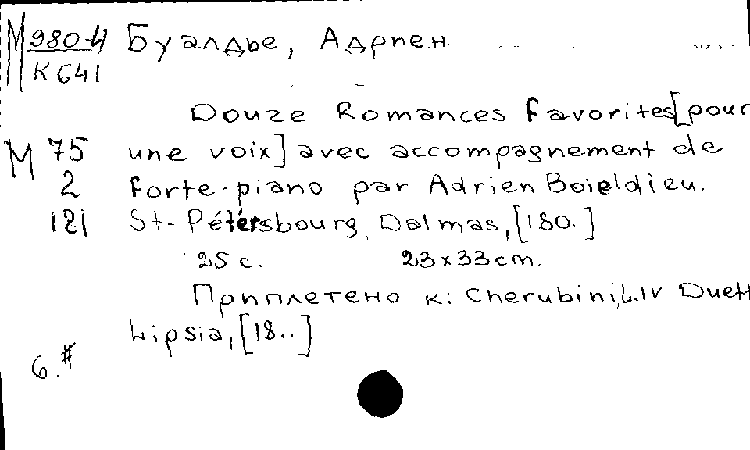 М 980-4 Буалдье, Адриен
К 641
Douze Romances favorites [pour
М 75 une voix] avec accompagnement de
2 forte-piano par Adrien Boieldieu.
121 St-Pétérsbourg, Dalmas, [180.]
25 с. 23x33 cm.
Приплетено к: Cherubini, L. IV Duett
Lipsia, [18..]
6.#